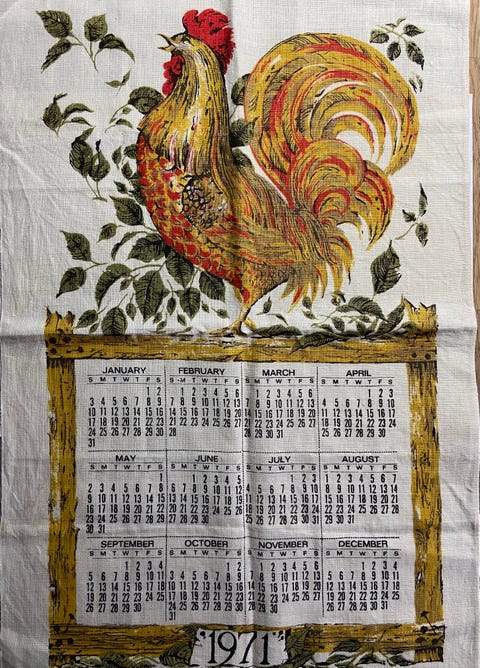 JANUARY
S M T W T F S
1 2
3 4 5 6 7 8 9
10 11 12 13 14 15 16
17 18 19 20 21 22 23
24 25 26 27 28 29 30
31
FEBRUARY
S M T W T F S
1 2 3 4 5 6
7 8 9 10 11 12 13
14 15 16 17 18 19 20
21 22 23 24 25 26 27
28
MARCH
S M T W T F S
1 2 3 4 5 6
7 8 9 10 11 12 13
14 15 16 17 18 19 20
21 22 23 24 25 26 27
28 29 30 31
APRIL
S M T W T F S
1 2 3
4 5 6 7 8 9 10
11 12 13 14 15 16 17
18 19 20 21 22 23 24
25 26 27 28 29 30
MAY
S M T W T F S
1
2 3 4 5 6 7 8
9 10 11 12 13 14 15
16 17 18 19 20 21 22
23 24 25 26 27 28 29
30 31
JUNE
S M T W T F S
1 2 3 4 5
6 7 8 9 10 11 12
13 14 15 16 17 18 19
20 21 22 23 24 25 26
27 28 29 30
JULY
S M T W T F S
1 2 3
4 5 6 7 8 9 10
11 12 13 14 15 16 17
18 19 20 21 22 23 24
25 26 27 28 29 30 31
AUGUST
S M T W T F S
1 2 3 4 5 6 7
8 9 10 11 12 13 14
15 16 17 18 19 20 21
22 23 24 25 26 27 28
29 30 31
SEPTEMBER
S M T W T F S
1 2 3 4
5 6 7 8 9 10 11
12 13 14 15 16 17 18
19 20 21 22 23 24 25
26 27 28 29 30
OCTOBER
S M T W T F S
1 2
3 4 5 6 7 8 9
10 11 12 13 14 15 16
17 18 19 20 21 22 23
24 25 26 27 28 29 30
31
NOVEMBER
S M T W T F S
1 2 3 4 5 6
7 8 9 10 11 12 13
14 15 16 17 18 19 20
21 22 23 24 25 26 27
28 29 30
DECEMBER
S M T W T F S
1 2 3 4
5 6 7 8 9 10 11
12 13 14 15 16 17 18
19 20 21 22 23 24 25
26 27 28 29 30 31
1971